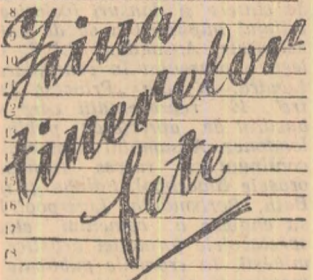 Ziua
tinerelor
fete